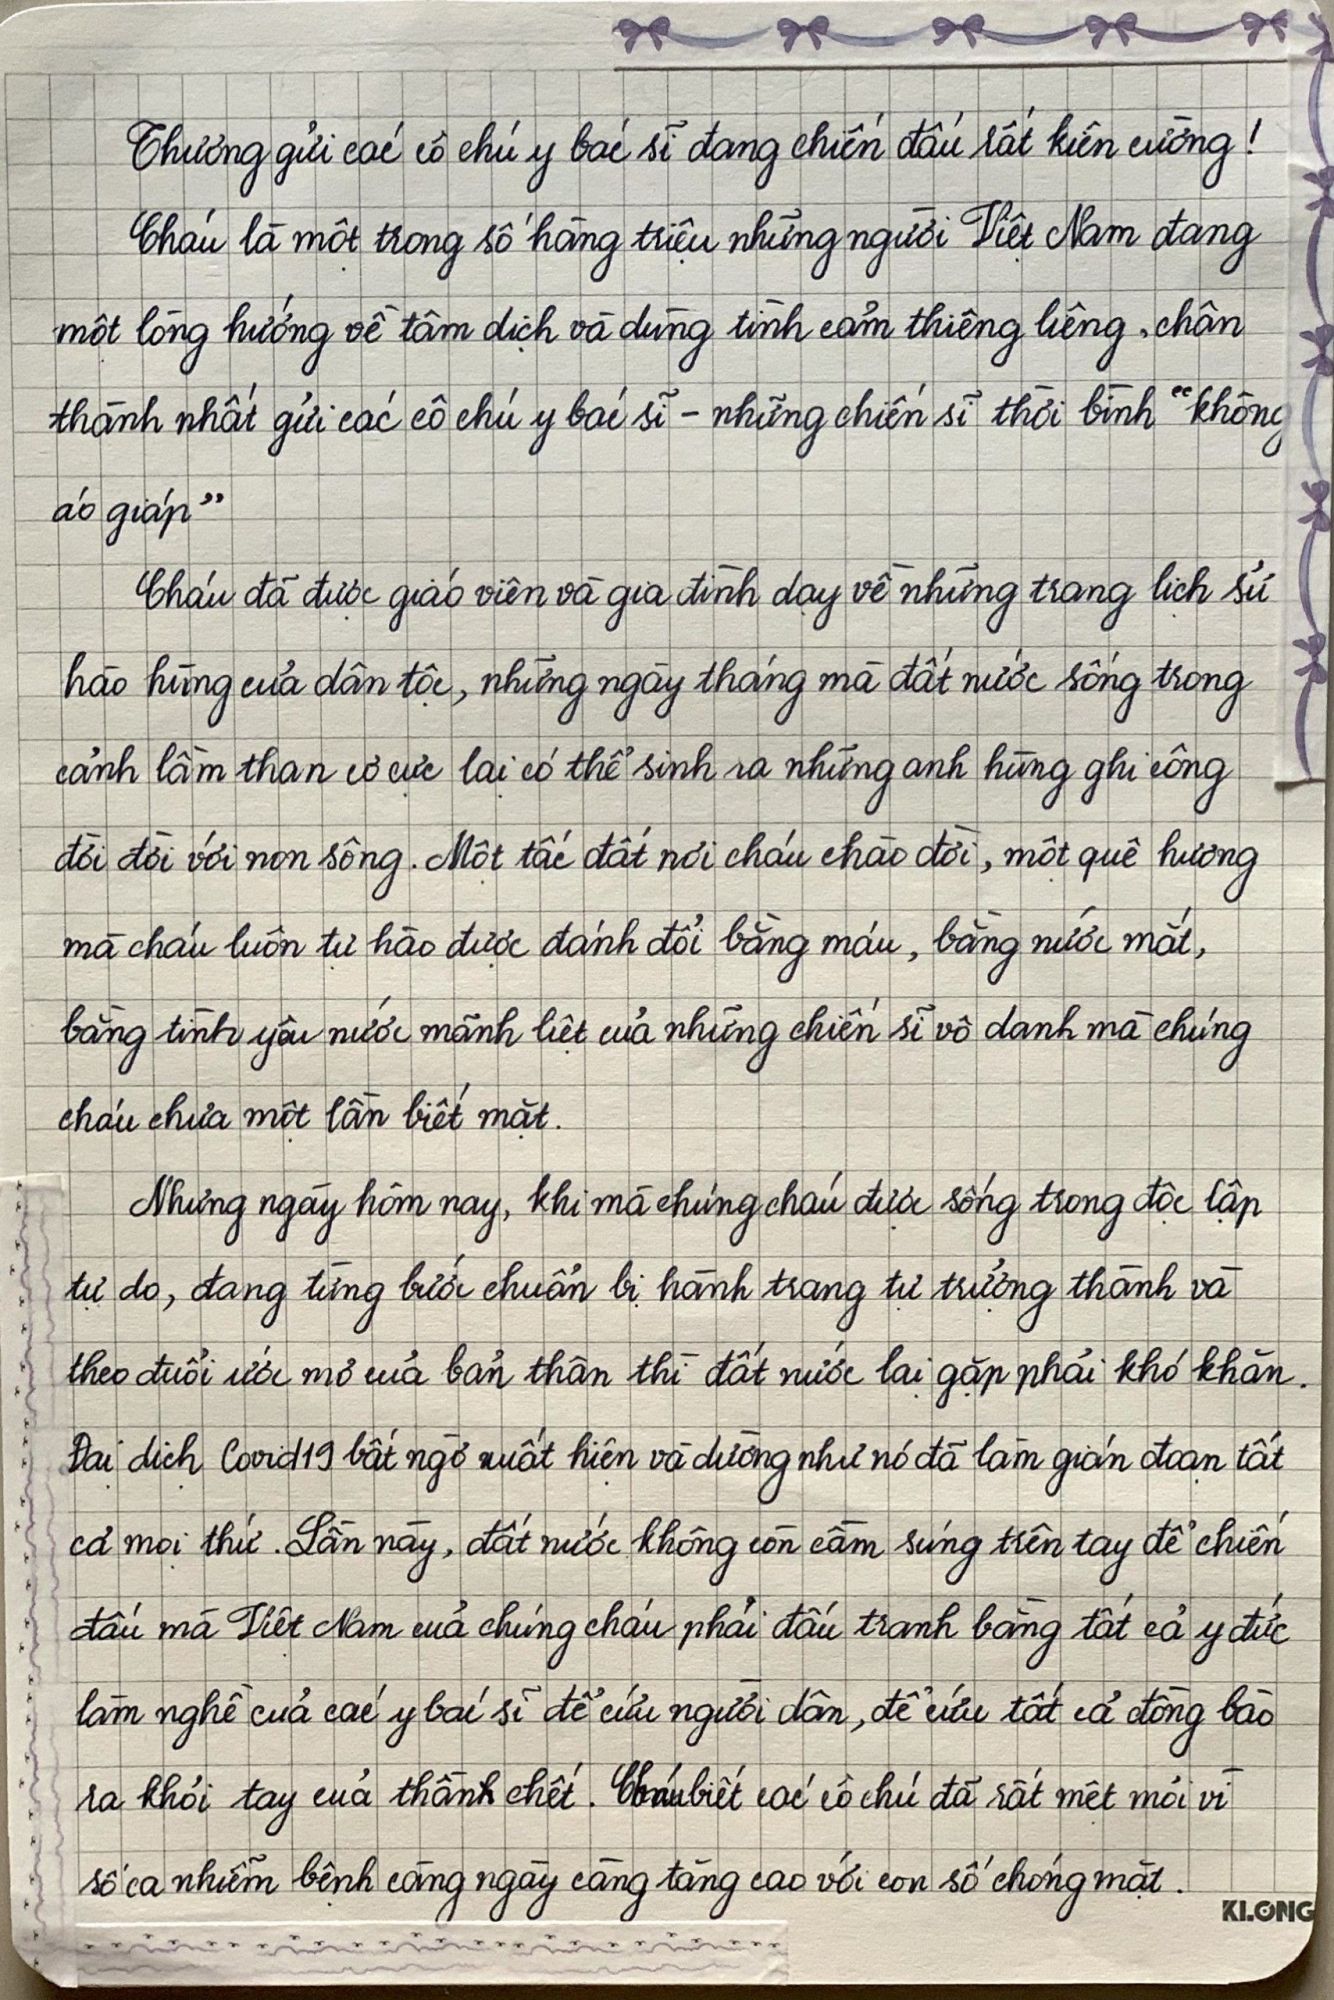 Thương gửi các cô chú y bác sĩ đang chiến đấu rất kiên cường!
Cháu là một trong số hàng triệu những người Việt Nam đang
một lòng hướng về tâm dịch và dùng tình cảm thiêng liêng, chân
thành nhất gửi các cô chú y bác sĩ - những chiến sĩ thời bình "không
áo giáp"
Cháu đã được giáo viên và gia đình dạy về những trang lịch sử
hào hùng của dân tộc, những ngày tháng mà đất nước sống trong
cảnh lầm than cơ cực lại có thể sinh ra những anh hùng ghi công
đời đời với non sông. Một tấc đất nơi cháu chào đời, một quê hương
mà cháu luôn tự hào được đánh đổi bằng máu, bằng nước mắt,
bằng tình yêu nước mãnh liệt của những chiến sĩ vô danh mà chúng
cháu chưa một lần biết mặt.
Nhưng ngày hôm nay, khi mà chúng cháu được sống trong độc lập
tự do, đang từng bước chuẩn bị hành trang tự trưởng thành và
theo đuổi ước mơ của bản thân thì đất nước lại gặp phải khó khăn.
Đại dịch Covid19 bất ngờ xuất hiện và dường như nó đã làm gián đoạn tất
cả mọi thứ. Lần này, đất nước không còn cầm súng trên tay để chiến
đấu mà Việt Nam của chúng cháu phải đấu tranh bằng tất cả y đức
làm nghề của các y bác sĩ để cứu người dân, để cứu tất cả đồng bào
ra khỏi tay của thần chết. Cháu biết các cô chú đã rất mệt mỏi vì
số ca nhiễm bệnh càng ngày càng tăng cao với con số chóng mặt.
KLONG